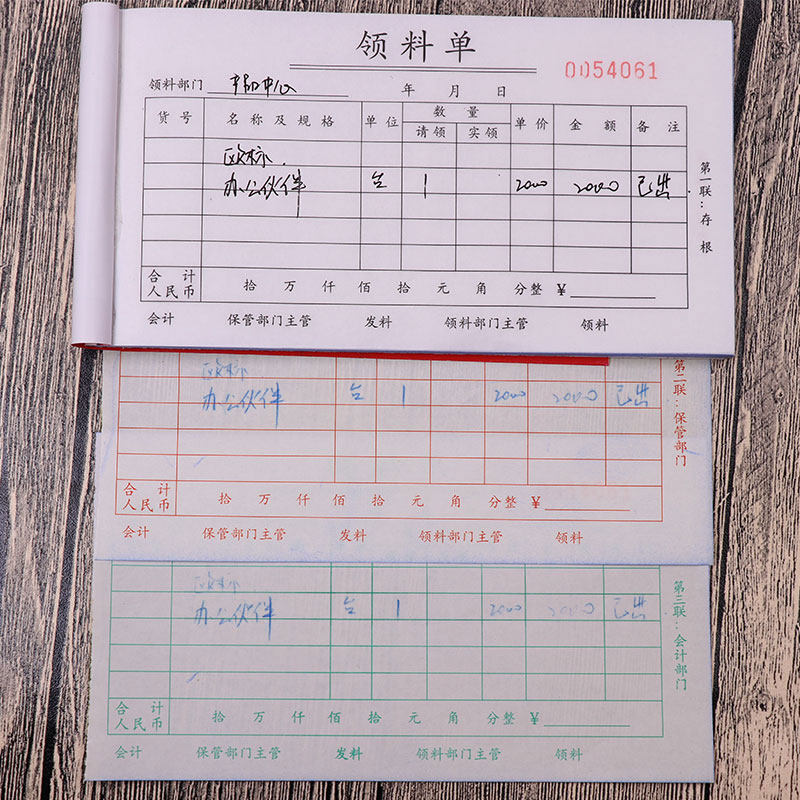 领料单
0054061
领料部门
年 月 日
货号 名称及规格 单位 数量 单价 金额 备注
请领 实领
欧标
办公伙伴 台 1 2000 2000 已出
第一联:存根
合计
人民币 拾 万 仟 佰 拾 元 角 分整 ¥
会计 保管部门主管 发料 领料部门主管 领料
欧标
办公伙伴 台 1 2000 2000 已出
第二联:保管部门
合计
人民币 拾 万 仟 佰 拾 元 角 分整 ¥
会计 保管部门主管 发料 领料部门主管 领料
欧标
办公伙伴 台 1 2000 2000 已出
第三联:会计部门
合计
人民币 拾 万 仟 佰 拾 元 角 分整 ¥
会计 保管部门主管 发料 领料部门主管 领料